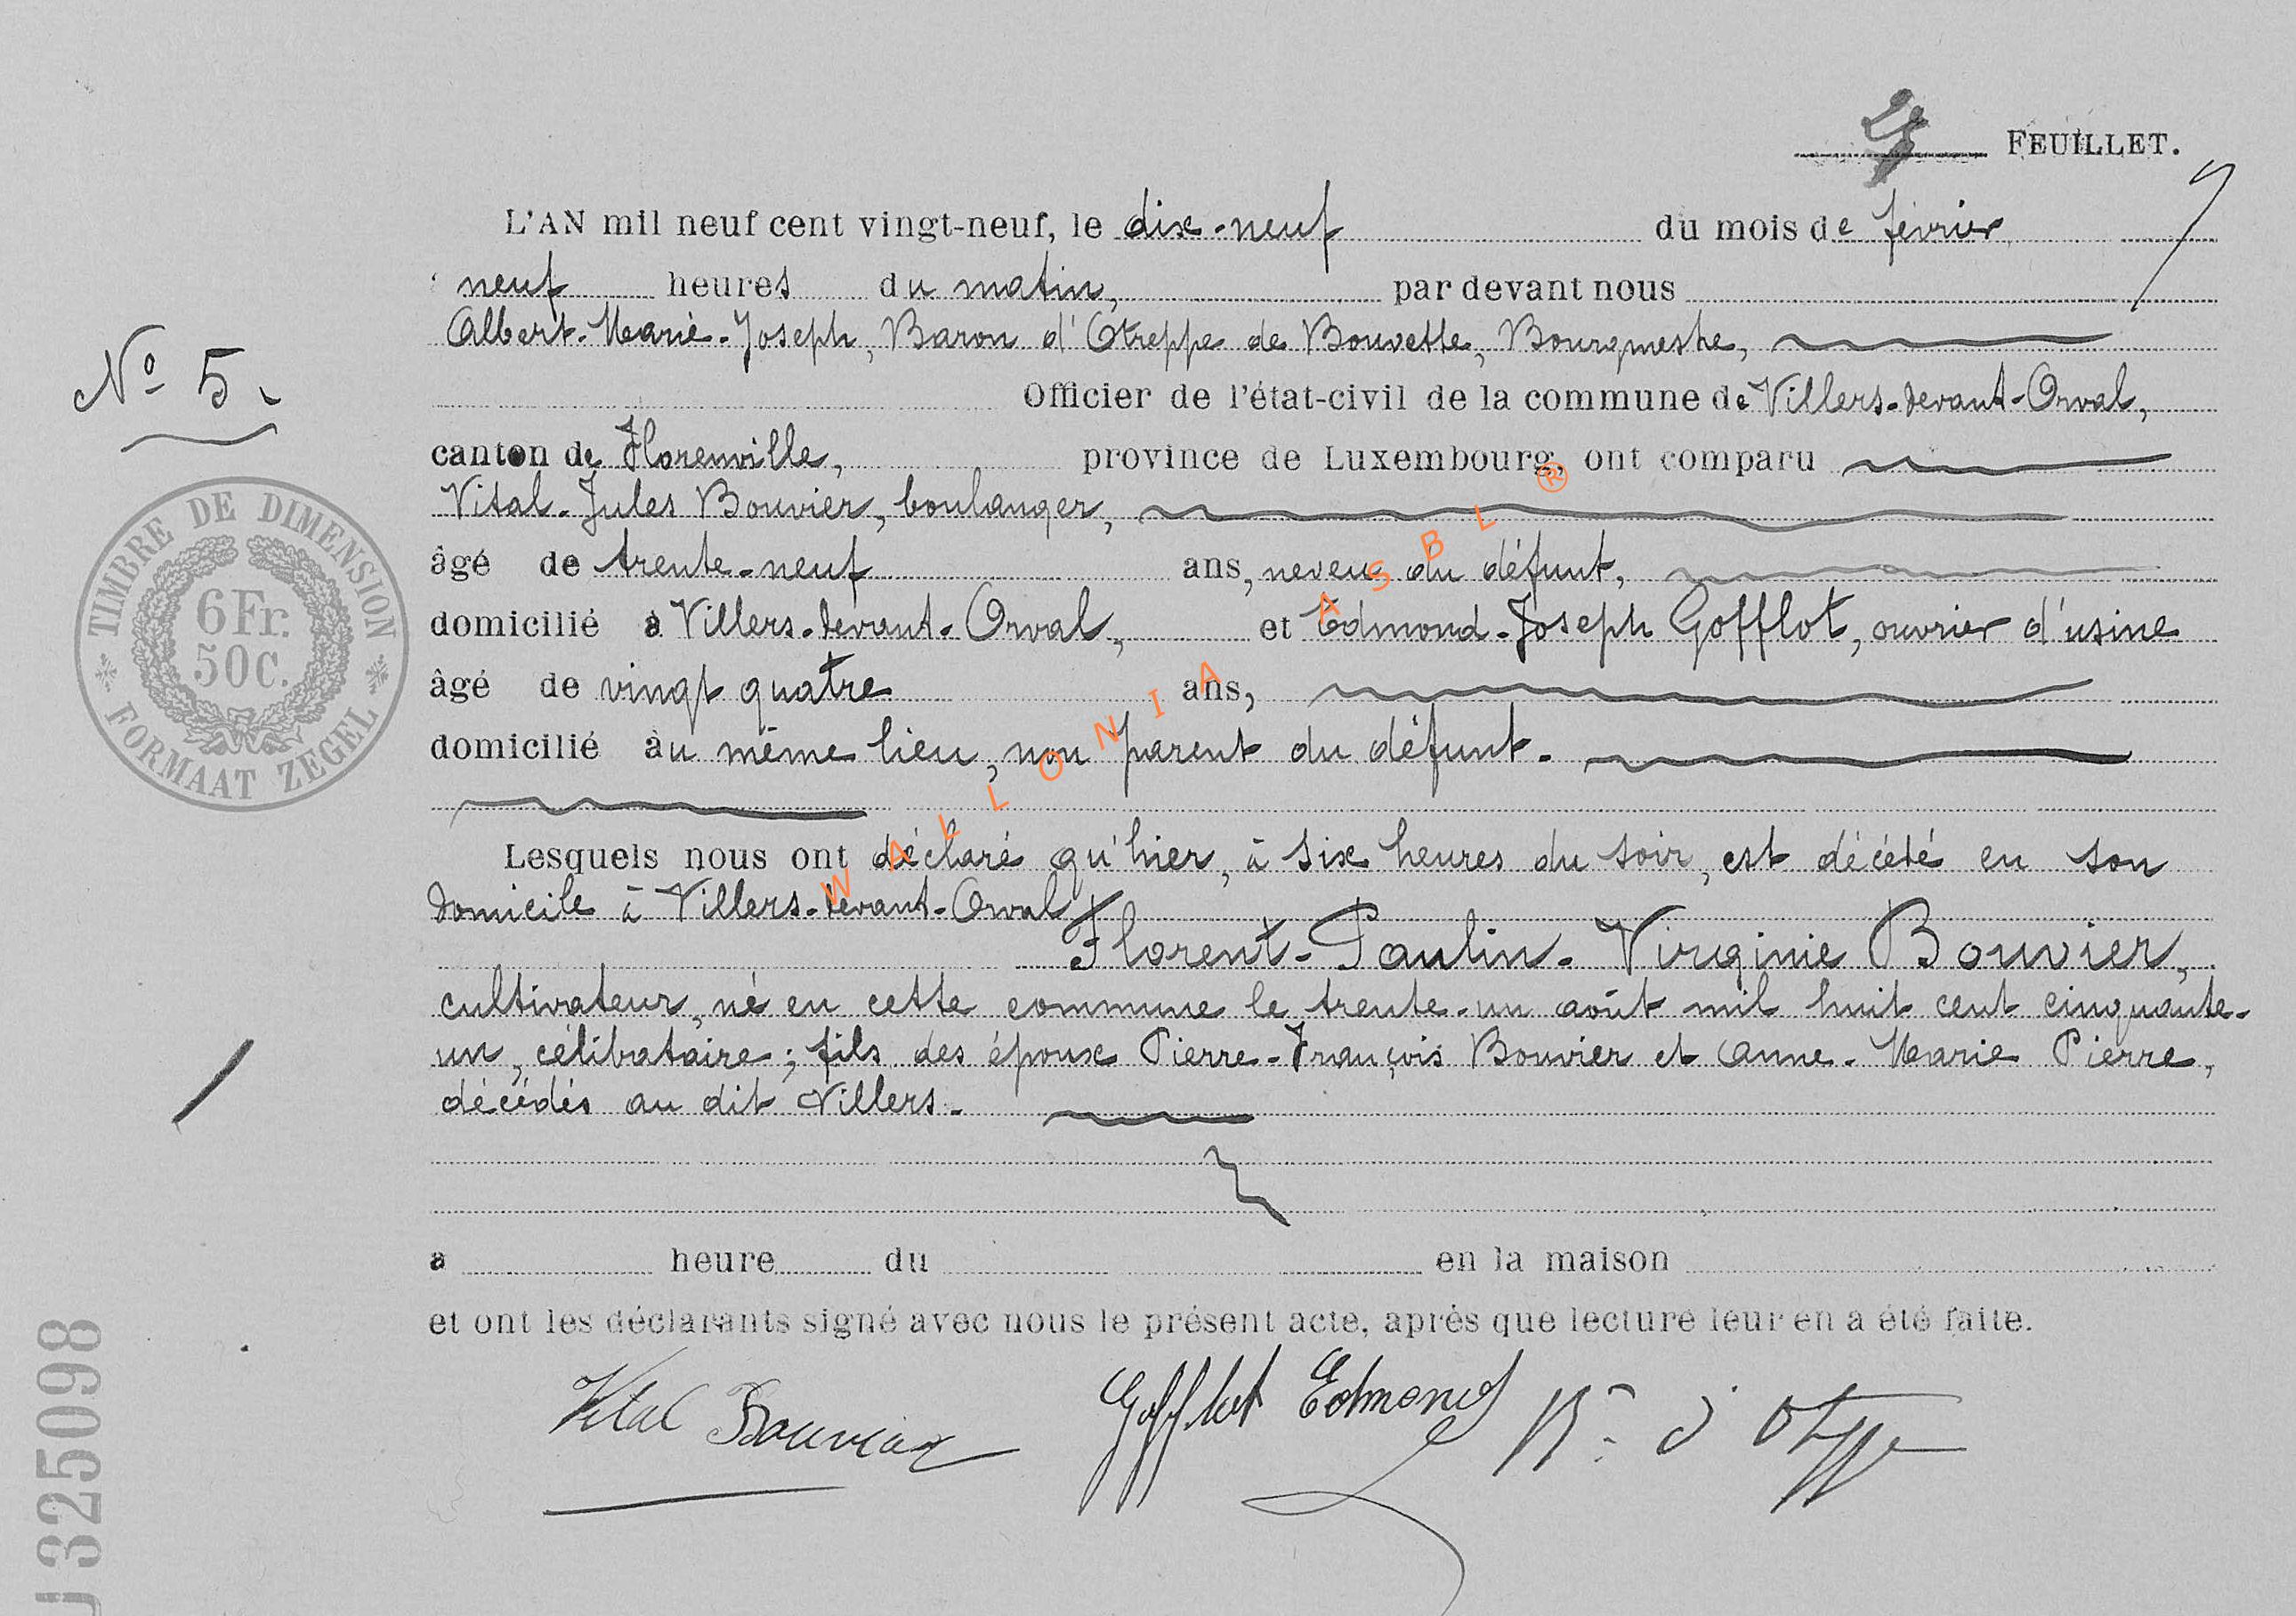 FEUILLET.
L'AN mil neuf cent vingt-neuf, le dix-neuf du mois de février
neuf heures du matin, par devant nous
Albert-Marie-Joseph, Baron d'Otreppe de Bouvette, Bourgmestre,
Officier de l'état-civil de la commune de Villers-devant-Orval,
canton de Florenville, province de Luxembourg, ont comparu
Vital-Jules Bouvier, boulanger,
âgé de trente-neuf ans, neveu du défunt,
domicilié à Villers-devant-Orval, et Edmond-Joseph Gofflot, ouvrier d'usine
âgé de vingt quatre ans,
domicilié au même lieu, non parent du défunt.
Lesquels nous ont déclaré qu'hier, à six heures du soir, est décédé en son
domicile à Villers-devant-Orval
Florent-Paulin-Virginie Bouvier,
cultivateur, né en cette commune le trente-un août mil huit cent cinquante-
un, célibataire; fils des époux Pierre-François Bouvier et Anne-Marie Pierre,
décédés au dit Villers.
a heure du en la maison
et ont les déclarants signé avec nous le présent acte, après que lecture leur en a été faite.
Vital Bouvier Gofflot Edmond Bon d'Otreppe
No 5.
TIMBRE DE DIMENSION
6Fr.
50C.
FORMAAT ZEGEL
325098
WALLONIA ASBL ®